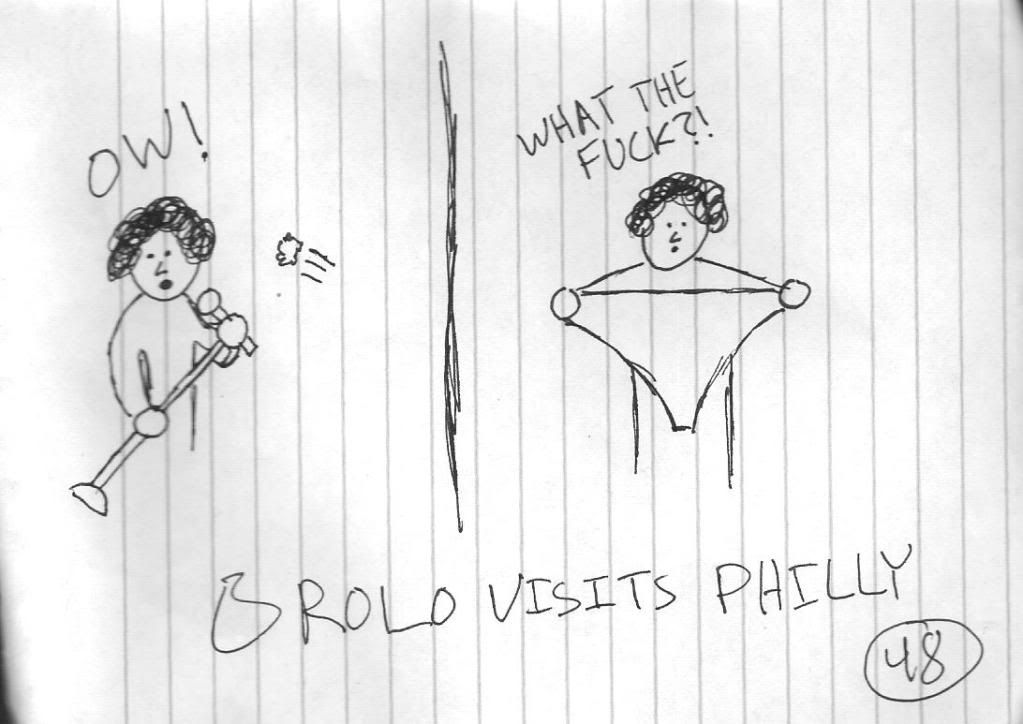 OW!
WHAT THE
FUCK?!
BROLO VISITS PHILLY
48